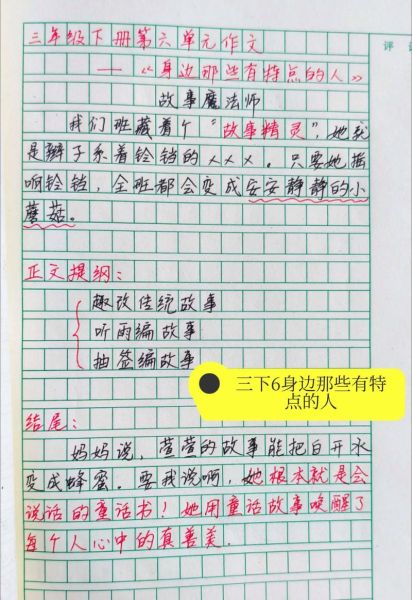 三年级下册第六单元作文
——《身边那些有特点的人》
故事魔法师
我们班藏着个“故事精灵”，她就
是辫子系着铃铛的×××。只要她摇
响铃铛，全班都会变成安安静静的小
蘑菇。
正文提纲：
趣改传统故事
听雨编故事
抽签编故事
三下6身边那些有特
点的人
结尾：
妈妈说，萱萱的故事能把白开水
变成蜂蜜。要我说啊，她根本就是会
说话的童话书！她用童话故事唤醒了
每个人心中的真善美.